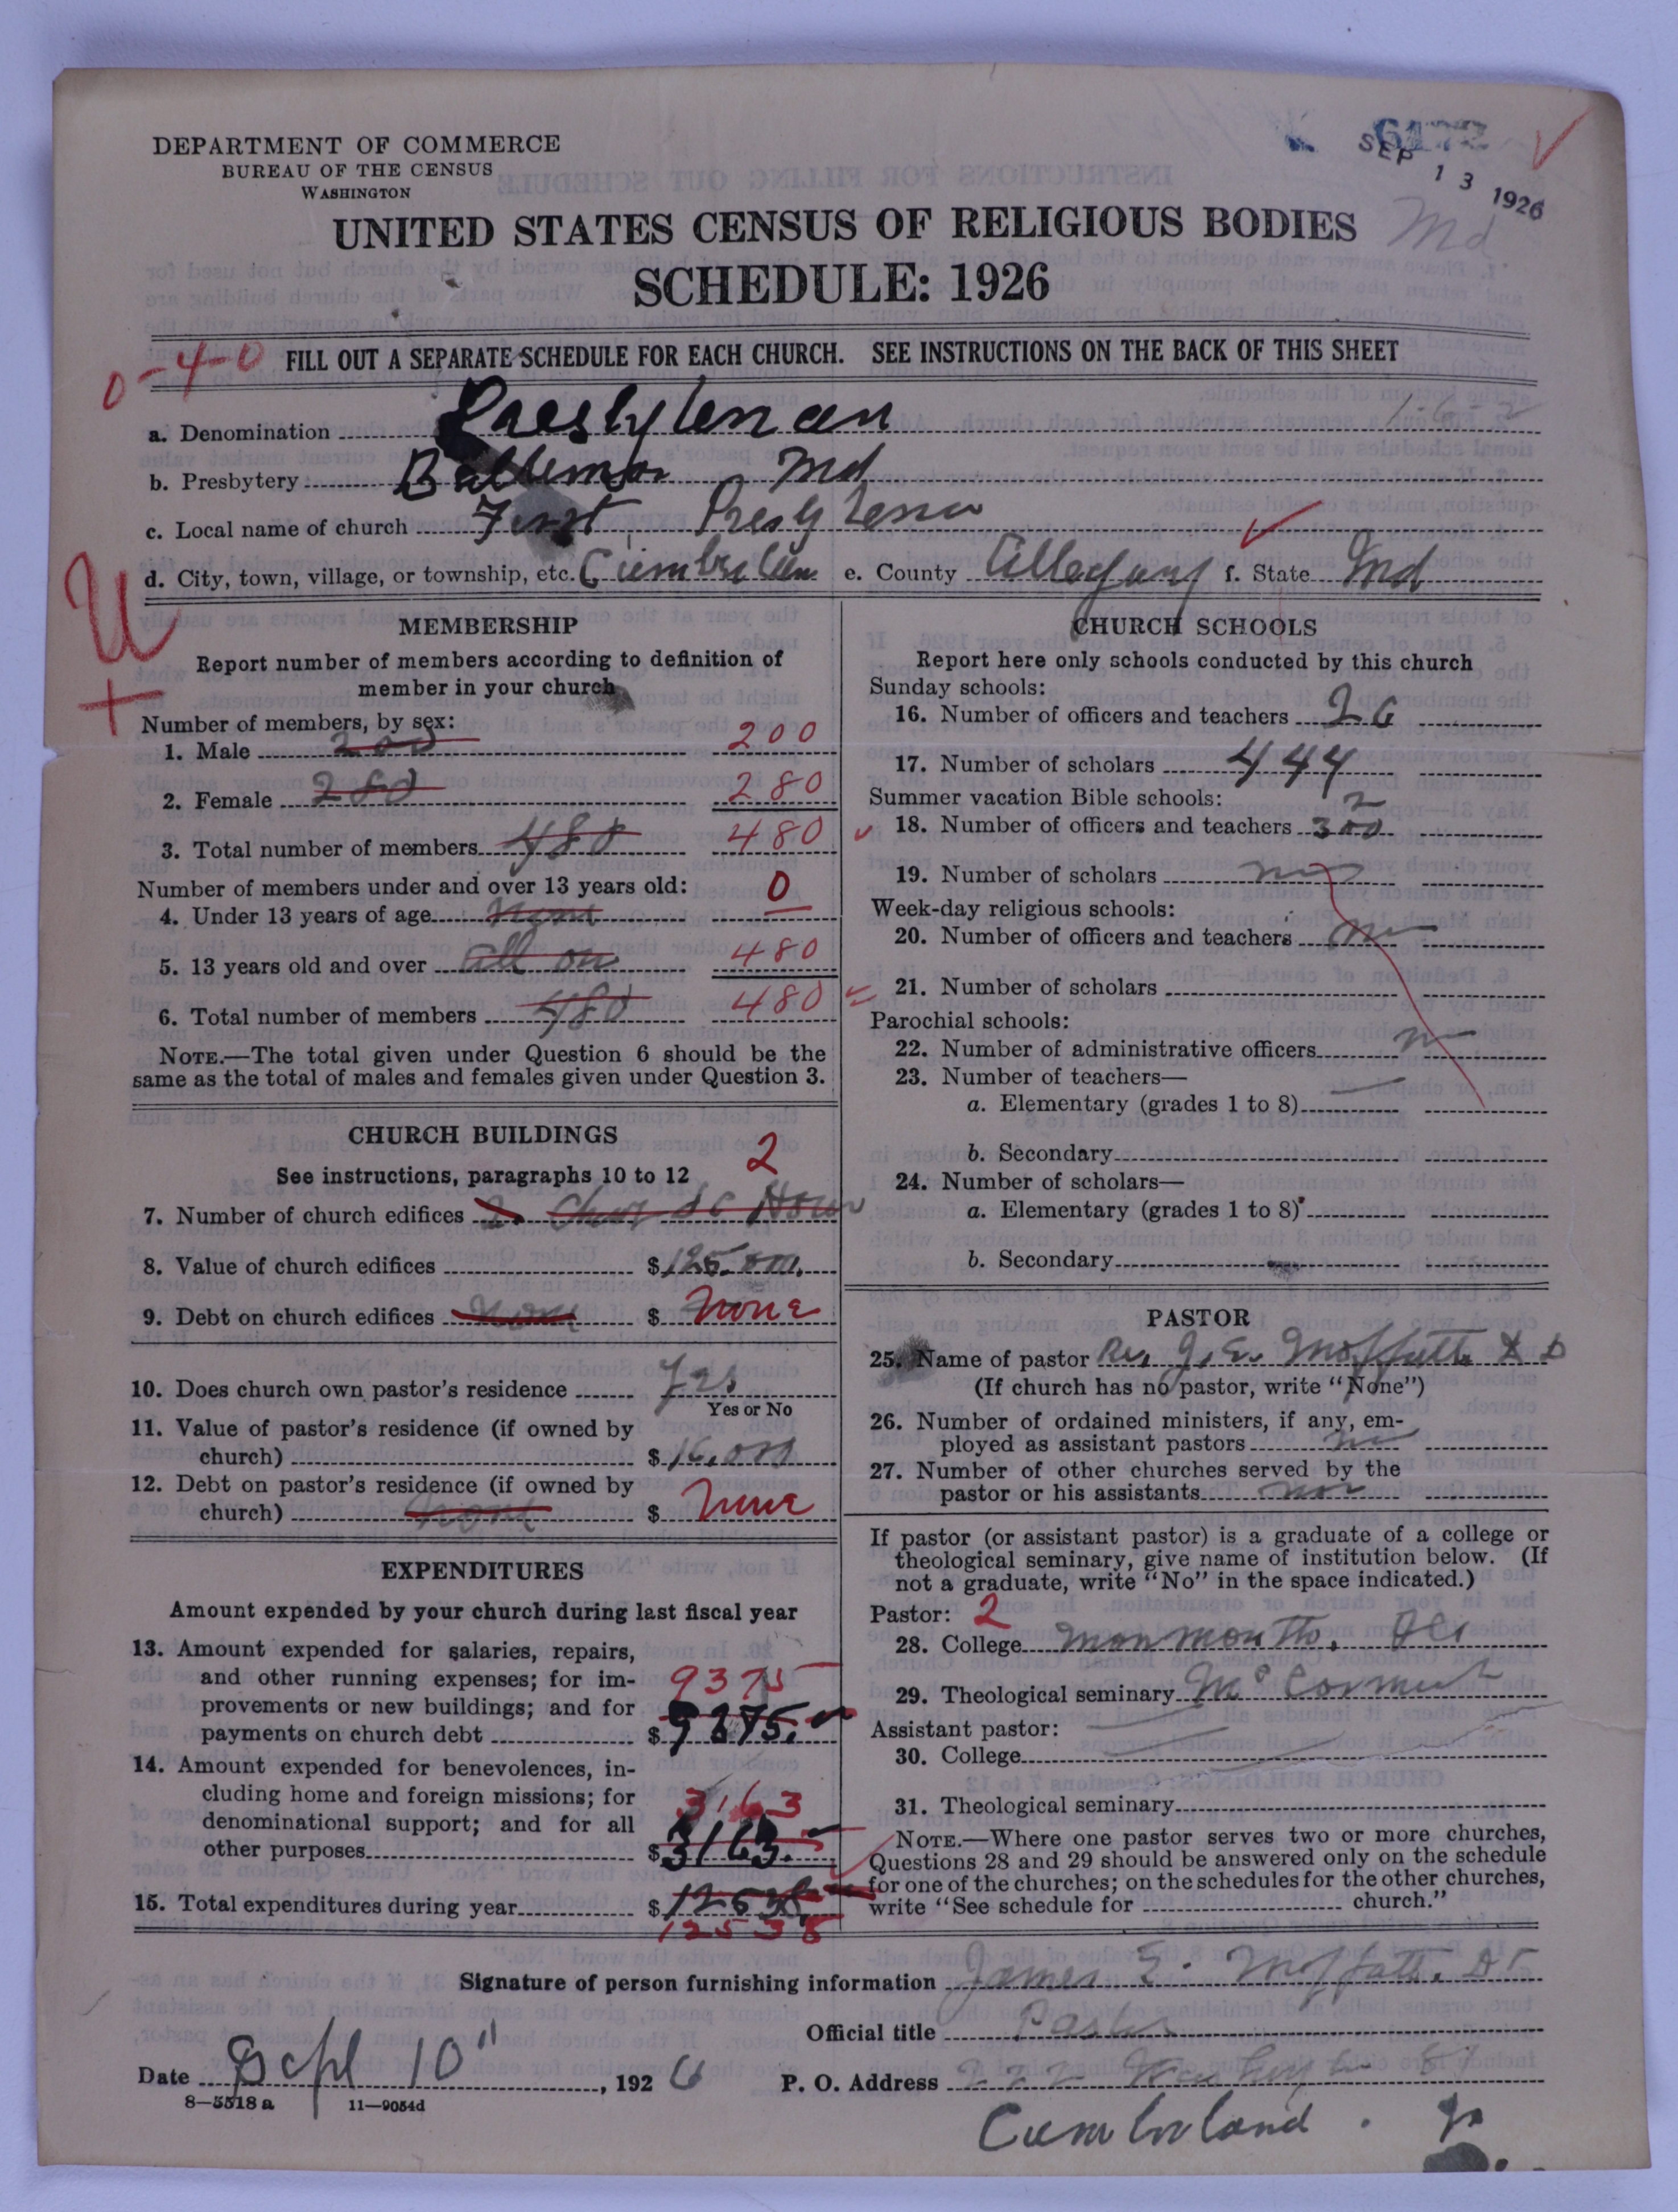 DEPARTMENT OF COMMERCE
BUREAU OF THE CENSUS
WASHINGTON
6172
SEP 13 1926
Md
UNITED STATES CENSUS OF RELIGIOUS BODIES
SCHEDULE: 1926
0-4-0
FILL OUT A SEPARATE SCHEDULE FOR EACH CHURCH. SEE INSTRUCTIONS ON THE BACK OF THIS SHEET
1-6-2
a. Denomination Presbyterian
b. Presbytery Baltimore Md
c. Local name of church First Presbyterian
d. City, town, village, or township, etc. Cumberland e. County Allegany f. State Md
U
+
MEMBERSHIP
Report number of members according to definition of
member in your church
Number of members, by sex:
1. Male 200 200
2. Female 280 280
3. Total number of members 480 480
Number of members under and over 13 years old:
4. Under 13 years of age None 0
5. 13 years old and over all over 480
6. Total number of members 480 480
NOTE.—The total given under Question 6 should be the
same as the total of males and females given under Question 3.
CHURCH BUILDINGS
See instructions, paragraphs 10 to 12 2
7. Number of church edifices 2
8. Value of church edifices $ 125.000.
9. Debt on church edifices None $ None
10. Does church own pastor's residence Yes
Yes or No
11. Value of pastor's residence (if owned by
church) $ 16,000
12. Debt on pastor's residence (if owned by
church) None $ None
EXPENDITURES
Amount expended by your church during last fiscal year
13. Amount expended for salaries, repairs,
and other running expenses; for im-
provements or new buildings; and for 9375
payments on church debt $ 9375.
14. Amount expended for benevolences, in-
cluding home and foreign missions; for
denominational support; and for all 3163
other purposes $ 3163.
15. Total expenditures during year $ 12538
12538
CHURCH SCHOOLS
Report here only schools conducted by this church
Sunday schools:
16. Number of officers and teachers 26
17. Number of scholars 444
Summer vacation Bible schools:
18. Number of officers and teachers
19. Number of scholars no
Week-day religious schools:
20. Number of officers and teachers no
21. Number of scholars
Parochial schools:
22. Number of administrative officers no
23. Number of teachers—
a. Elementary (grades 1 to 8)
b. Secondary
24. Number of scholars—
a. Elementary (grades 1 to 8)
b. Secondary
PASTOR
25. Name of pastor Rev J. E. Moffatt D D
(If church has no pastor, write "None")
26. Number of ordained ministers, if any, em-
ployed as assistant pastors no
27. Number of other churches served by the
pastor or his assistants non
If pastor (or assistant pastor) is a graduate of a college or
theological seminary, give name of institution below. (If
not a graduate, write "No" in the space indicated.)
Pastor: 2
28. College Monmouth, Ill
29. Theological seminary McCormick
Assistant pastor:
30. College
31. Theological seminary
NOTE.—Where one pastor serves two or more churches,
Questions 28 and 29 should be answered only on the schedule
for one of the churches; on the schedules for the other churches,
write "See schedule for church."
Signature of person furnishing information James E. Moffatt, D D
Official title Pastor
Date Sept 10", 1926 P. O. Address 222 Washington St
8—5518 a 11—9054d
Cumberland.